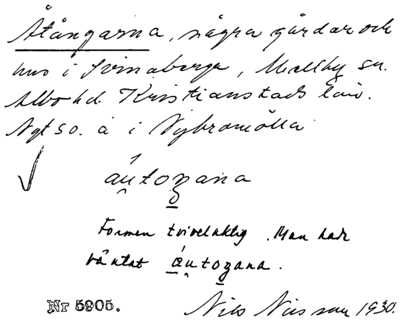 Åtångarna, några gårdar och
hus i Svinaberga, Mellby sn.
Albo hd. Kristianstads län.
Nyt so. å i Nybromölla
áutoʒana
Formen tvivelaktig. Man had
väntat áutoʒana.
Nr 5905.
Nils Nilsson 1930.